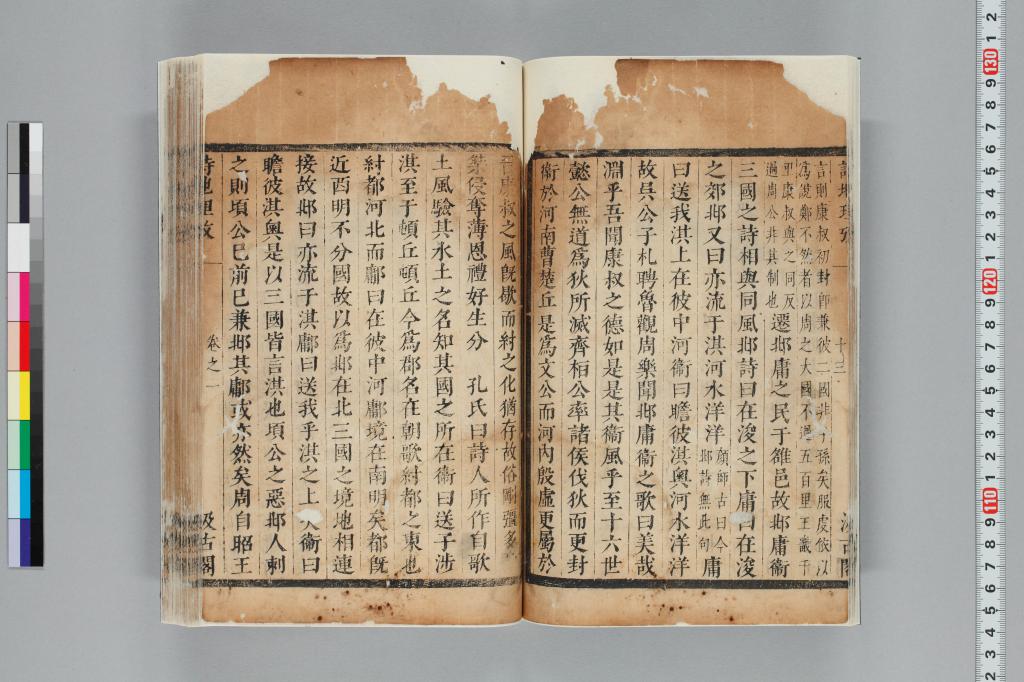 詩地理攷 十三 汲古閣
言則康叔初封卽兼彼二國非子孫矣服虔依以
爲說鄭不然者以周之大國不過五百里王畿千
里康叔與之同反
過周公非其制也
遷邶庸之民于雒邑故邶庸衞
三國之詩相與同風邶詩曰在浚之下庸曰在浚
之郊邶又曰亦流于淇河水洋洋 顏師古曰今邶詩無此句 庸
曰送我淇上在彼中河衞曰瞻彼淇奧河水洋洋
故吳公子札聘魯觀周樂聞邶庸衞之歌曰美哉
淵乎吾聞康叔之德如是是其衞風乎至十六世
懿公無道爲狄所滅齊桓公率諸侯伐狄而更封
衞於河南曹楚丘是爲文公而河內殷虛更屬於
晉康叔之風旣歇而紂之化猶存故俗剛彊多
桀侵奪薄恩禮好生分 孔氏曰詩人所作自歌
土風驗其水土之名知其國之所在衞曰送子涉
淇至于頓丘頓丘今爲郡名在朝歌紂都之東也
紂都河北而鄘曰在彼中河鄘境在南明矣都旣
近西明不分國故以爲邶在北三國之境地相連
接故邶曰亦流于淇鄘曰送我乎淇之上矣衞曰
瞻彼淇奧是以三國皆言淇也頃公之惡邶人刺
之則頃公已前已兼邶其鄘或亦然矣周自昭王
詩地理攷 卷之一 汲古閣